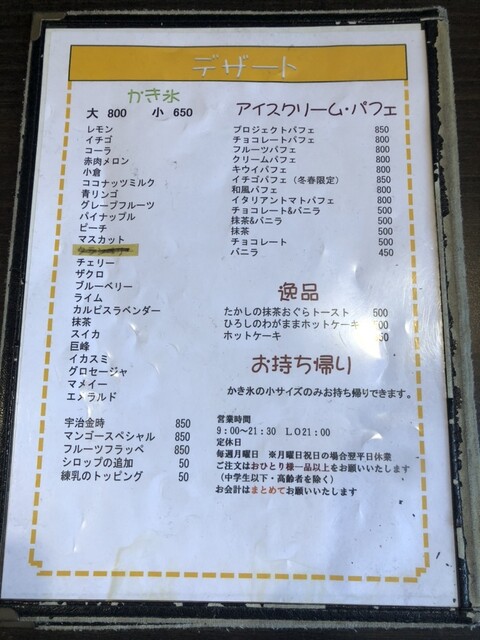 デザート
かき氷
大 800 小 650
レモン
イチゴ
コーラ
赤肉メロン
小倉
ココナッツミルク
青リンゴ
グレープフルーツ
パイナップル
ピーチ
マスカット
チェリー
ザクロ
ブルーベリー
ライム
カルピスラベンダー
抹茶
スイカ
巨峰
イカスミ
グロセージャ
マメイー
エメラルド
宇治金時 850
マンゴースペシャル 850
フルーツフラッペ 850
シロップの追加 50
練乳のトッピング 50
アイスクリーム・パフェ
プロジェクトパフェ 850
チョコレートパフェ 800
フルーツパフェ 800
クリームパフェ 800
キウイパフェ 800
イチゴパフェ（冬春限定） 850
和風パフェ 800
イタリアントマトパフェ 800
チョコレート&バニラ 500
抹茶&バニラ 500
抹茶 500
チョコレート 500
バニラ 450
逸品
たかしの抹茶おぐらトースト 500
ひろしのわがままホットケーキ
ホットケーキ
お持ち帰り
かき氷の小サイズのみお持ち帰りできます。
営業時間
9：00～21：30 LO21：00
定休日
毎週月曜日 ※月曜日祝日の場合翌平日休業
ご注文はおひとり様一品以上をお願いいたします
（中学生以下・高齢者を除く）
お会計はまとめてお願いいたします